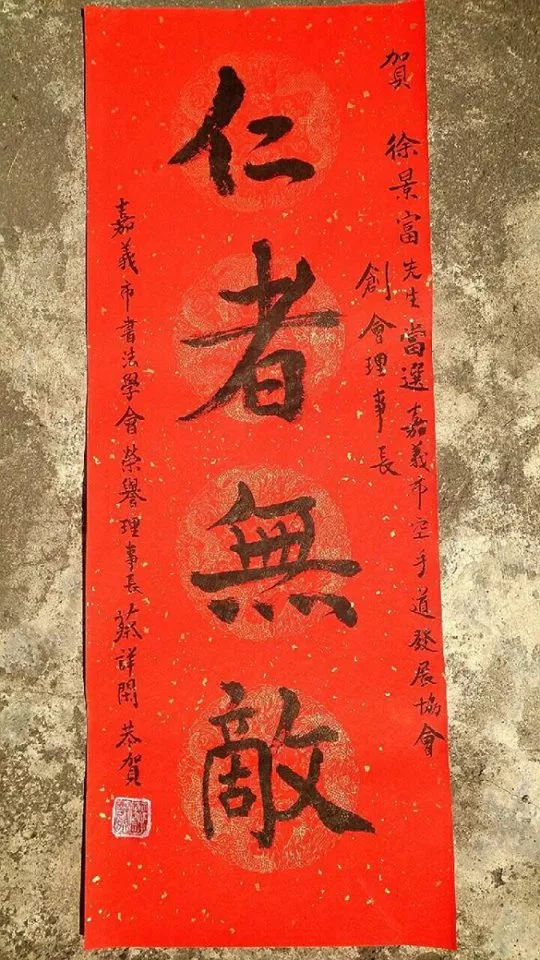 賀 徐景富先生當選嘉義市空手道發展協會
創會理事長
仁者無敵
嘉義市書法學會榮譽理事長蔡詳閑 恭賀